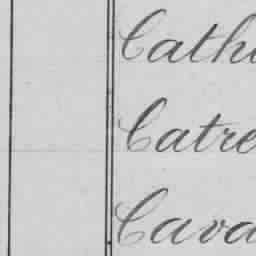 Cath
Catre
Cava